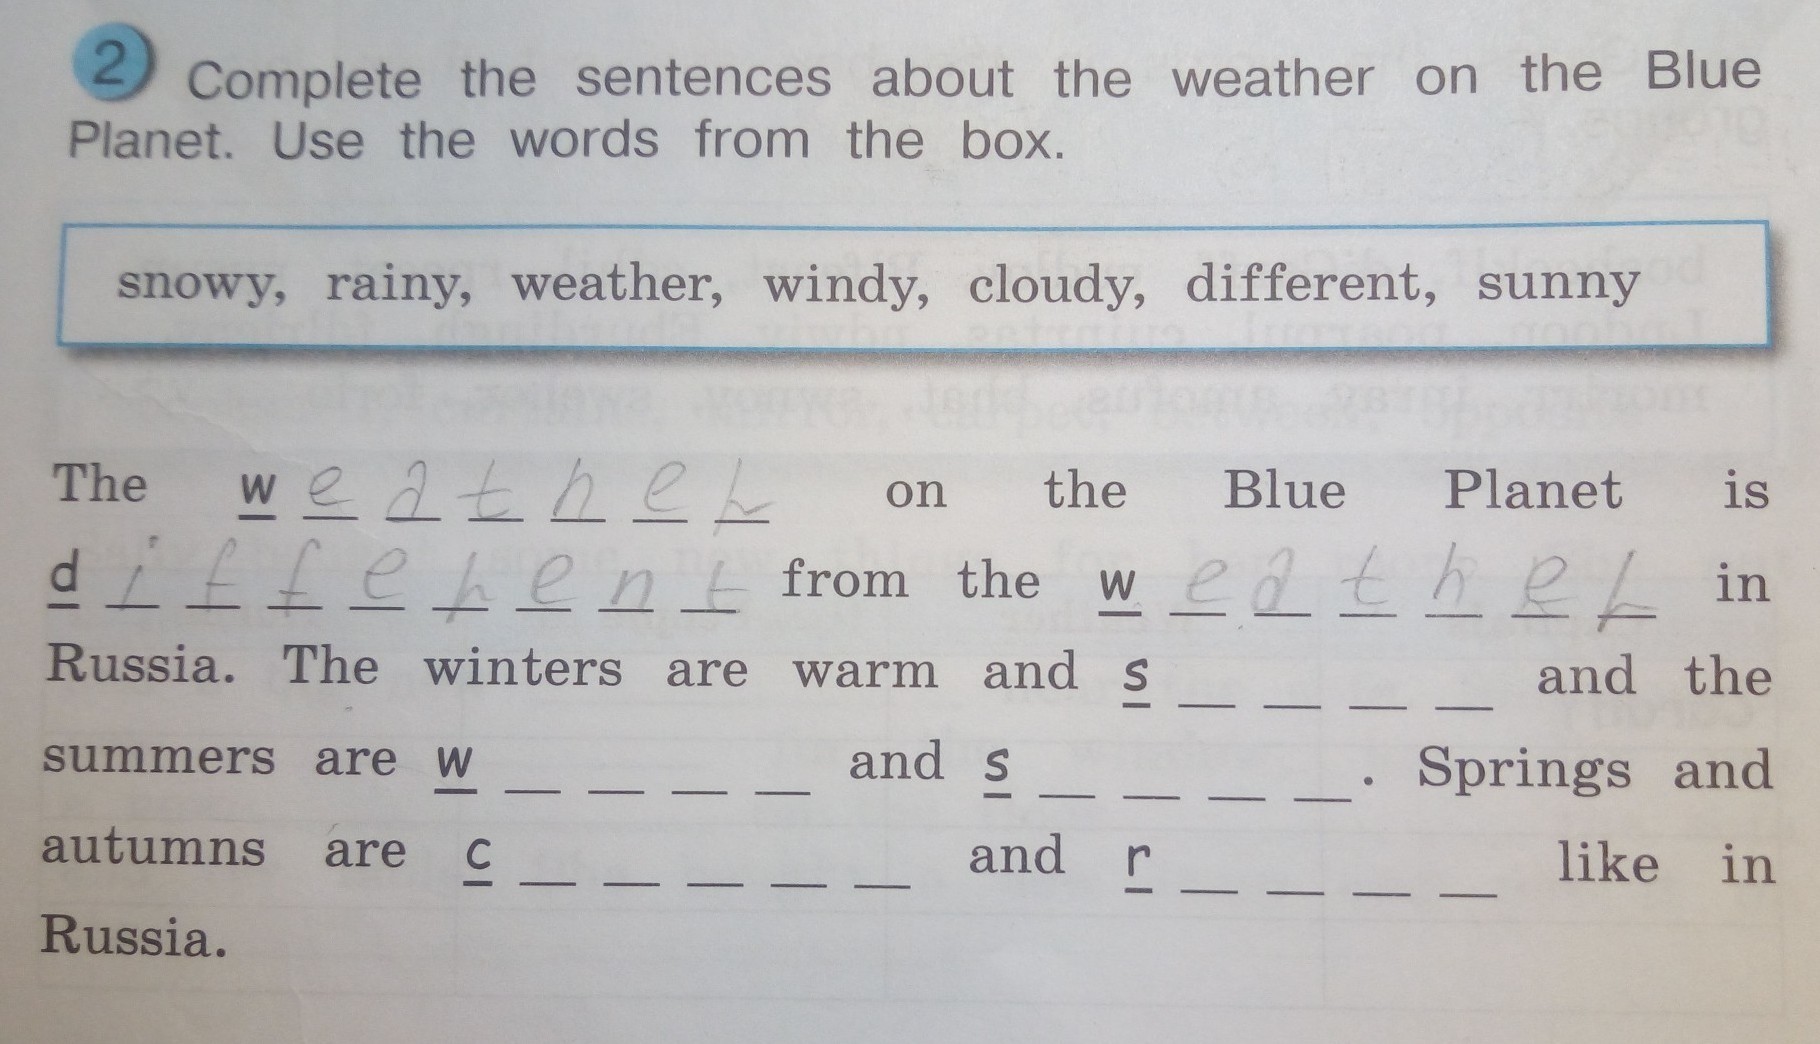 2 Complete the sentences about the weather on the Blue
Planet. Use the words from the box.
snowy, rainy, weather, windy, cloudy, different, sunny
The weather on the Blue Planet is
different from the weather in
Russia. The winters are warm and s _ _ _ _ and the
summers are w _ _ _ _ and s _ _ _ _. Springs and
autumns are c _ _ _ _ _ and r _ _ _ _ like in
Russia.